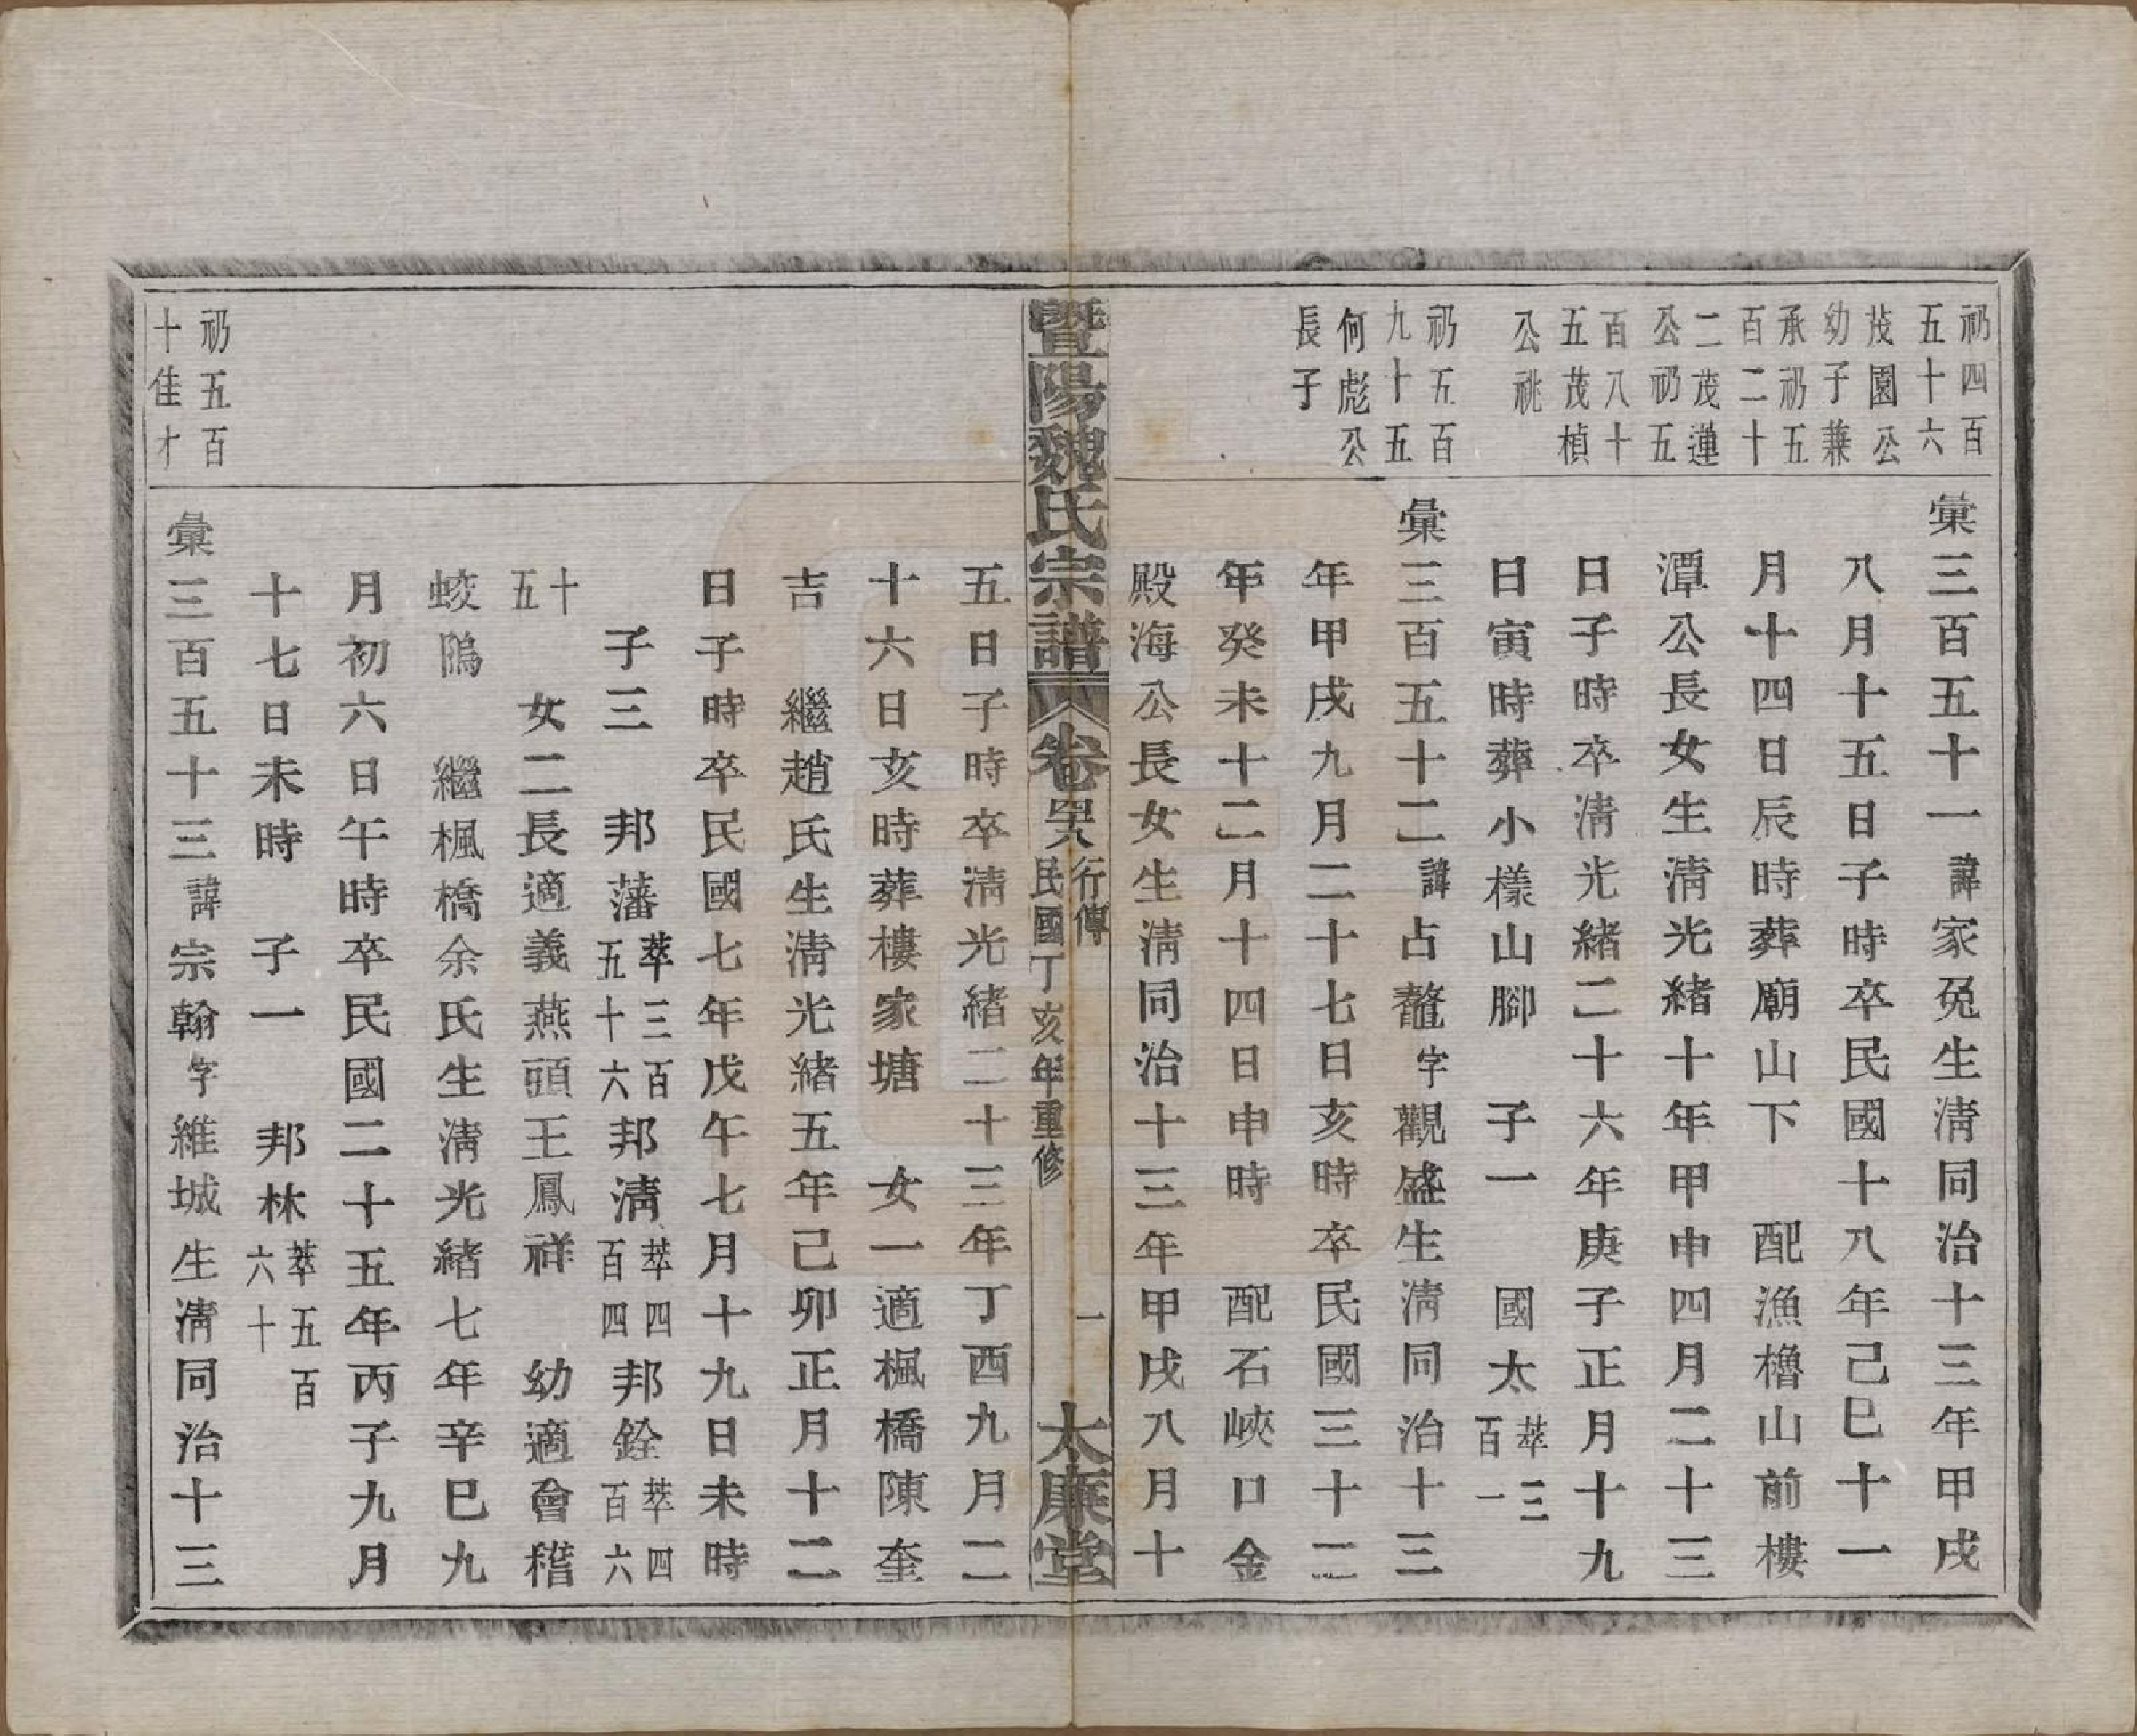 祁四百
五十六
茂園公
幼子兼
承祁五
百二十
二茂蓮
公祁五
百八十
五茂楨
公祧
彙三百五十一諱家兔生淸同治十三年甲戌
八月十五日子時卒民國十八年己巳十一
月十四日辰時葬廟山下 配漁櫓山前樓
潭公長女生淸光緒十年甲申四月二十三
日子時卒淸光緒二十六年庚子正月十九
日寅時葬小樣山腳 子一 國太萃三百一
祁五百
九十五
何彪公
長子
彙三百五十二諱占鼇字觀盛生淸同治十三
年甲戌九月二十七日亥時卒民國三十二
年癸未十二月十四日申時 配石峽口金
殿海公長女生淸同治十三年甲戌八月十
暨陽魏氏宗譜
卷
行傳
民國丁亥年重修
一
太廉堂
五日子時卒淸光緒二十三年丁酉九月二
十六日亥時葬樓家塘 女一適楓橋陳奎
吉 繼趙氏生淸光緒五年己卯正月十二
日子時卒民國七年戊午七月十九日未時
子三 邦藩萃三百五十六邦淸萃四百四邦銓萃四百六
十五 女二長適義燕頭王鳳祥 幼適會稽
蛟鴋 繼楓橋余氏生淸光緒七年辛巳九
月初六日午時卒民國二十五年丙子九月
十七日未時 子一 邦林萃五百六十
祁五百
十佳才
彙三百五十三諱宗翰字維城生淸同治十三